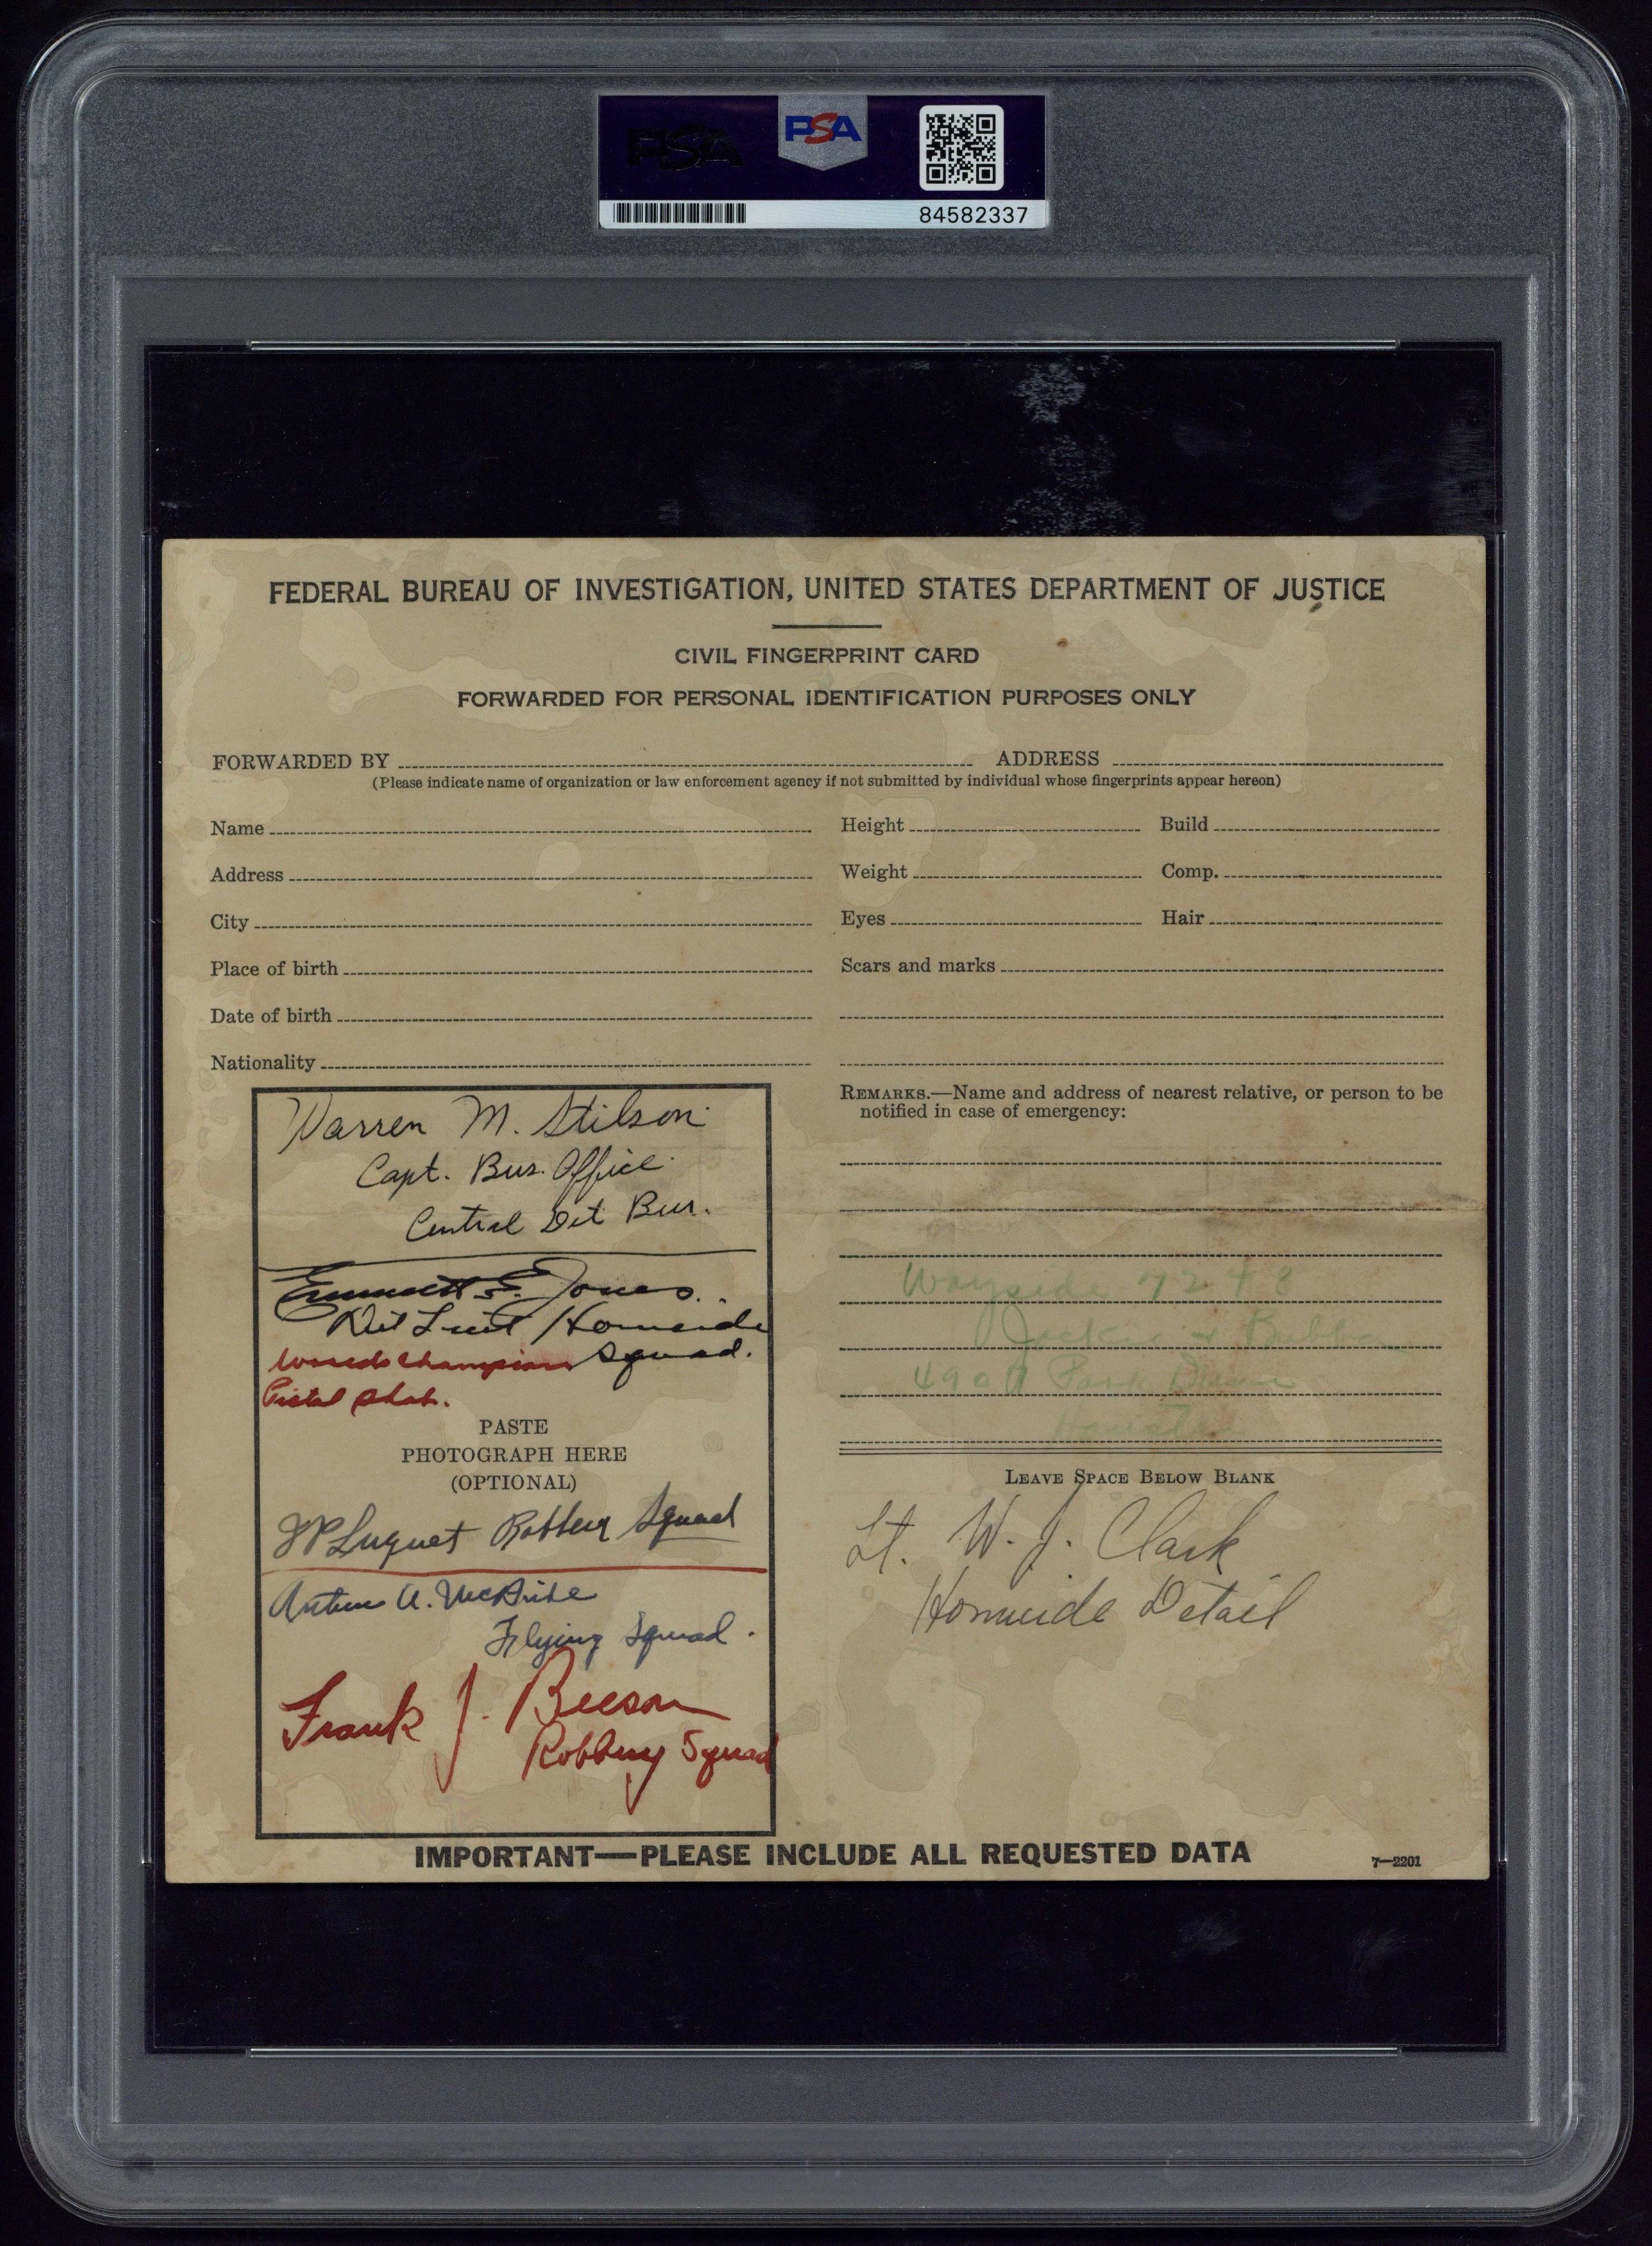 PSA
PSA
84582337
FEDERAL BUREAU OF INVESTIGATION, UNITED STATES DEPARTMENT OF JUSTICE
CIVIL FINGERPRINT CARD
FORWARDED FOR PERSONAL IDENTIFICATION PURPOSES ONLY
FORWARDED BY ADDRESS
(Please indicate name of organization or law enforcement agency if not submitted by individual whose fingerprints appear hereon)
Name
Address
City
Place of birth
Date of birth
Nationality
Height Build
Weight Comp.
Eyes Hair
Scars and marks
Warren M. Stilson
Capt. Bus. Office
Central Det Bur.
Emmett E. Jones.
Det Lieut Homicide
Squad.
Worlds Champion
Pistol Shot.
PASTE
PHOTOGRAPH HERE
(OPTIONAL)
JP Luquet Robbery Squad
Arthur A. McBride
Flying Squad.
Frank J. Beeson
Robbery Squad
REMARKS.—Name and address of nearest relative, or person to be
notified in case of emergency:
Wayside 7248
Jackie & Bubba
Park Drive
LEAVE SPACE BELOW BLANK
Lt. W. J. Clark
Homicide Detail
IMPORTANT—PLEASE INCLUDE ALL REQUESTED DATA
7—2201